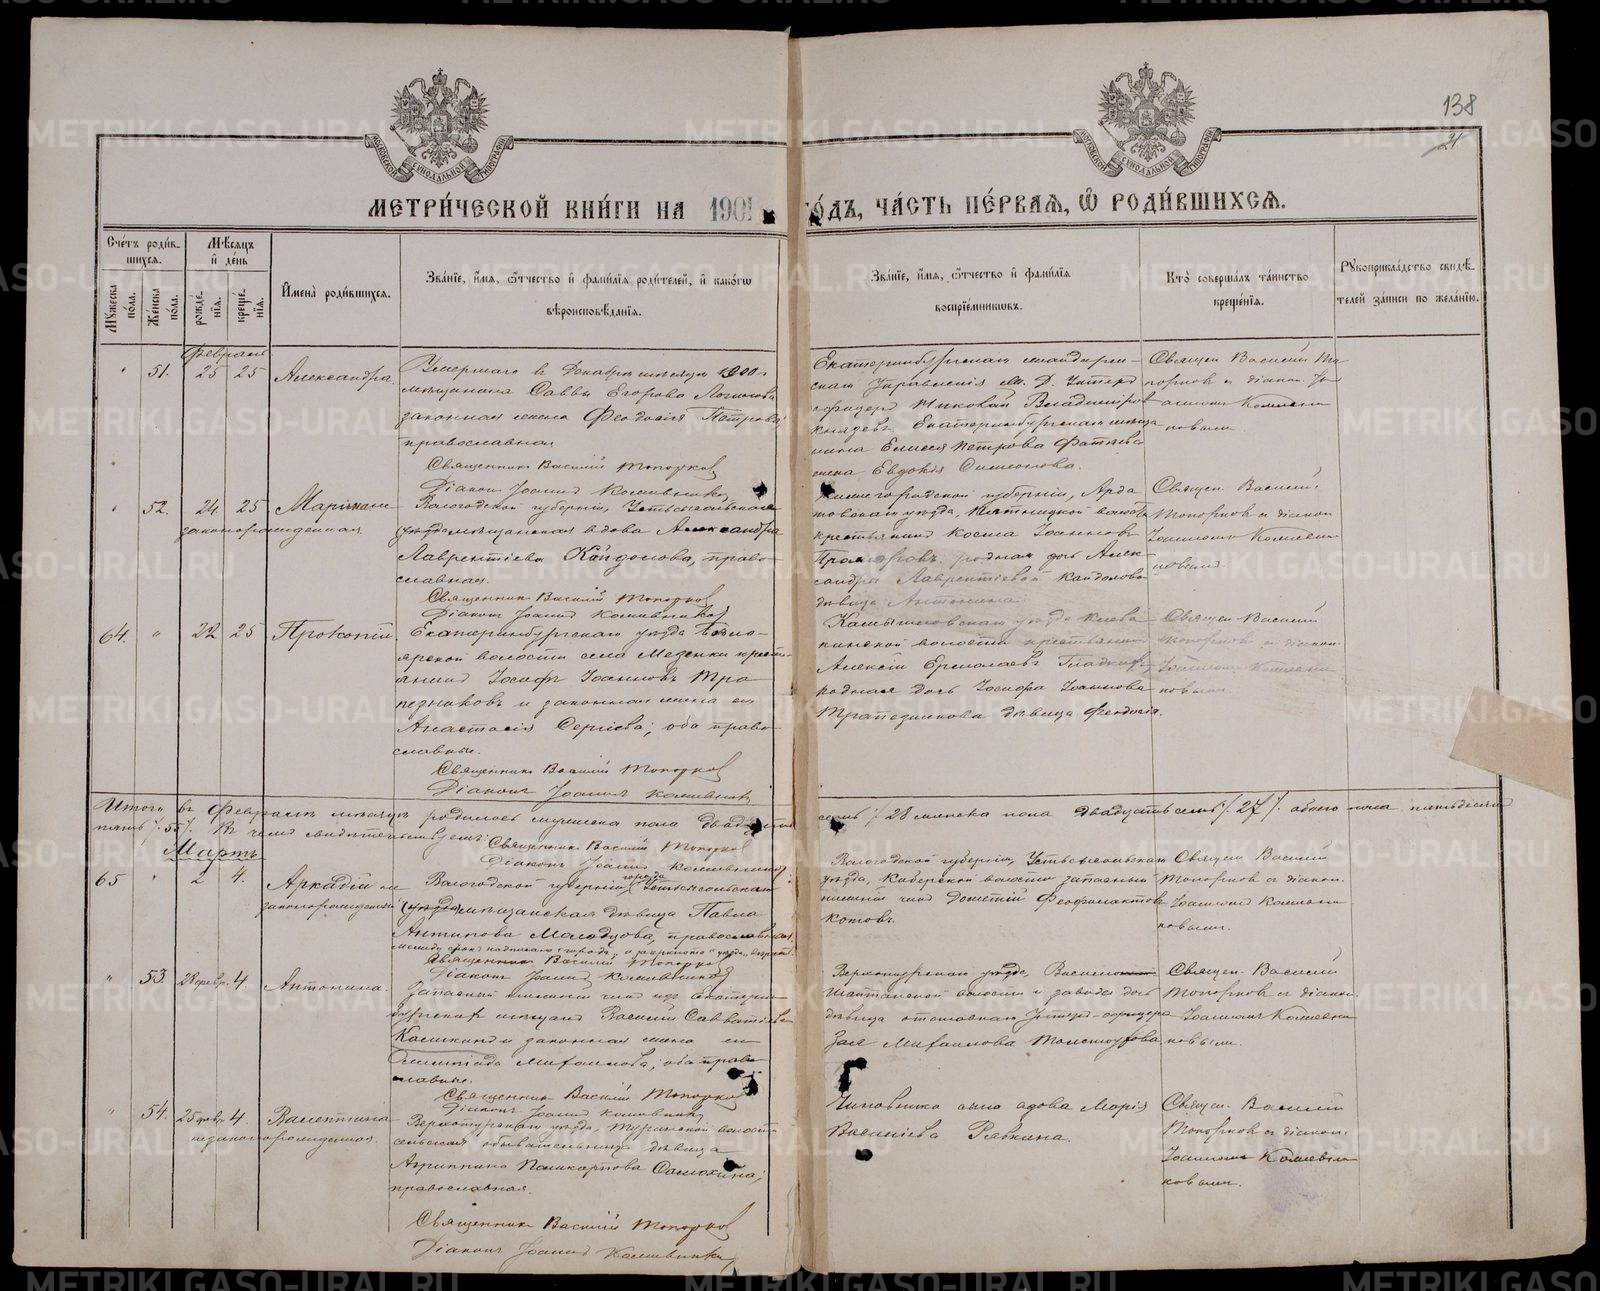 138
21
МОСКОВСКОЙ СѴНОДАЛЬНОЙ ТИПОГРАФІИ
МОСКОВСКОЙ СѴНОДАЛЬНОЙ ТИПОГРАФІИ
МЕТРИ́ЧЕСКОЙ КНИ́ГИ НА 1901 ГО́ДЪ, ЧА́СТЬ ПЕ́РВАѦ, Ѿ РОДИ́ВШИХСѦ.
Сче́тъ роди́в-
шихсѧ.
Мꙋжеска по́ла.
Же́нска по́ла.
Мѣ́сѧцъ
и҆ де́нь
рожде́-
нїѧ.
креще́-
нїѧ.
И҆мена̀ роди́вшихсѧ.
Зва́нїе, и҆́мѧ, ѻ҆́тчество и҆ фами́лїѧ роди́телей, и҆ како́гѡ
вѣроисповѣ́данїѧ.
Зва́нїе, и҆́мѧ, ѻ҆́тчество и҆ фами́лїѧ
воспрїе́мникѡвъ.
Кто̀ соверша́лъ та́инство
креще́нїѧ.
Рꙋкоприкла́дство свидѣ́-
телей за́писи по жела́нїю.
Февраль
51. 25 25 Александра.
Умершаго в Декабре месяце 1900 г.
мещанина Саввы Егорова Логинова
законная жена Феодосія Петрова,
православная
Священникъ Василій Топорков
Діаконъ Іоаннъ Кожевников
унтер
офицеръ Николай Владиміров
Князевъ. Екатеринбургскаго меща
нина Елисея Петрова
жена Евдокія Симеонова.
Священ. Василій То
порков с діакон. Іо
анном Кожевни
ковым
52. 24 25 Маріи
законорожденная
Вологодской губерніи, Устьсысольскаго
уезда мещанская вдова Александра
Лаврентіева Кандолова, право-
славная.
Священникъ Василій Топорков
Діаконъ Іоаннъ Кожевников
Нижегородской губерніи, Арда
товскаго уезда, волости
крестьянинъ Косма Іоаннов
родная дочь Алек-
сандры Лаврентіевой Кандолово
девица Антонина.
Священ. Василій
Топорков с діакон
Іоанномъ Кожевни
ковым
64. " 22 25 Прокопій.
Екатеринбургскаго уезда Бело-
ярской волости села Мезенки кресть-
янинъ Іосифъ Іоанновъ Тра
пезниковъ и законная жена его
Анастасія Сергіева; оба право
славные.
Священникъ Василій Топорков
Діаконъ Іоаннъ Кожевников
Камышловскаго уезда
волости крестьянин
Алексій Ермолаевъ Гладких
родная дочь Іосифа Іоаннова
Трапезникова девица Феодосія.
Священ. Василій
Топорков с діакон.
Іоанном Кожевни
ковым.
Итого в Феврале месяце родилось мужеска пола двадцать
восемь /28/ женска пола двадцать семь /27/. обоего пола пятьдесят
пять /55/. В чем свидетельствуем:
Священникъ Василій Топорков
Діаконъ Іоаннъ Кожевников
Мартъ
65 " 2 4. Аркадій не
законорожденный
Вологодской губерніи, города Устьсысольска
(уезда) мещанская девица Павла
Антипова Молодцова, православная,
Священникъ Василій Топорков
Діаконъ Іоаннъ Кожевников
Вологодской губерніи, Устьсысольскаго
уезда, волости запасный
нижній чинъ Дометій Феофилактов
Котовъ.
Священ Василій
Топорков с діакон.
Іоанном Кожевни
ковым.
" 53. 28 февр. 4 Антонина.
Запасный нижній чинъ изъ Екатерин
бургских мещанъ Василій Савватіевъ
Калинкин и законная жена его
Олимпіада Михаилова; оба право
славные.
Священникъ Василій Топорков
Діаконъ Іоаннъ Кожевников
Верхотурскаго уезда,
Шайтанской волости и завода дочь
девица отставнаго Унтер-офицера
Зоя Михаилова Толстоухова
Священ. Василій
Топорков с діакон.
Іоанном Кожевни
ковым.
" 54. 25 февр. 4 Валентина
незаконнорожденная.
Верхотурскаго уезда, Туринской волости
сельская обывательница девица
Агриппина Поликарпова Самохина;
православная.
Священникъ Василій Топорков
Діаконъ Іоаннъ Кожевников
Чиновника жена вдова Марія
Василіева Рявкина.
Священ. Василій
Топорков с діакон.
Іоанном Кожевни
ковым.
METRIKI.GASO-URAL.RU